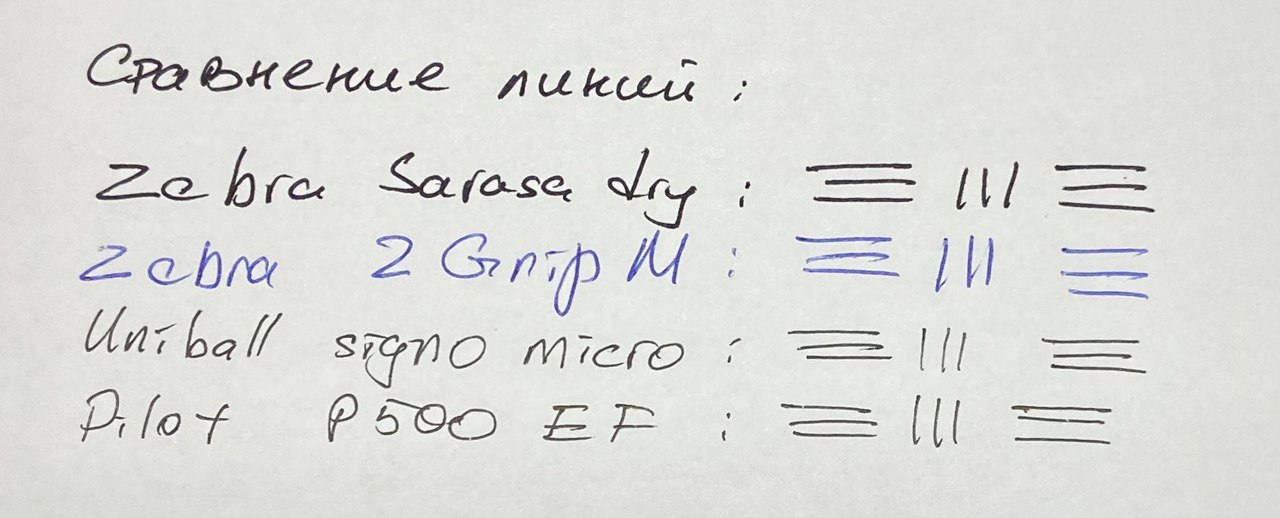 Сравнение линий:
Zebra Sarasa dry:
Zebra Z Grip M:
Uniball signo micro:
Pilot P500 EF: